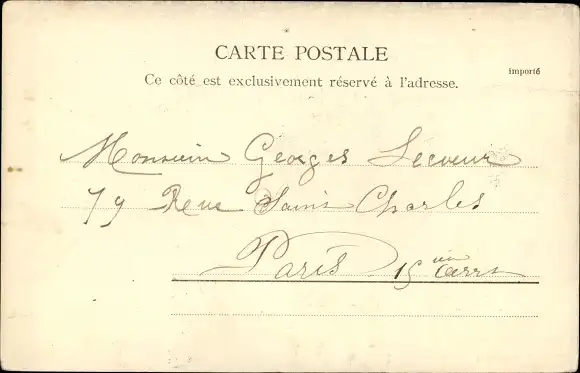 CARTE POSTALE
Ce côté est exclusivement réservé à l'adresse.
importé
Monsieur Georges Lecoeur
79 Rue Saint Charles
Paris 15ème Arrt